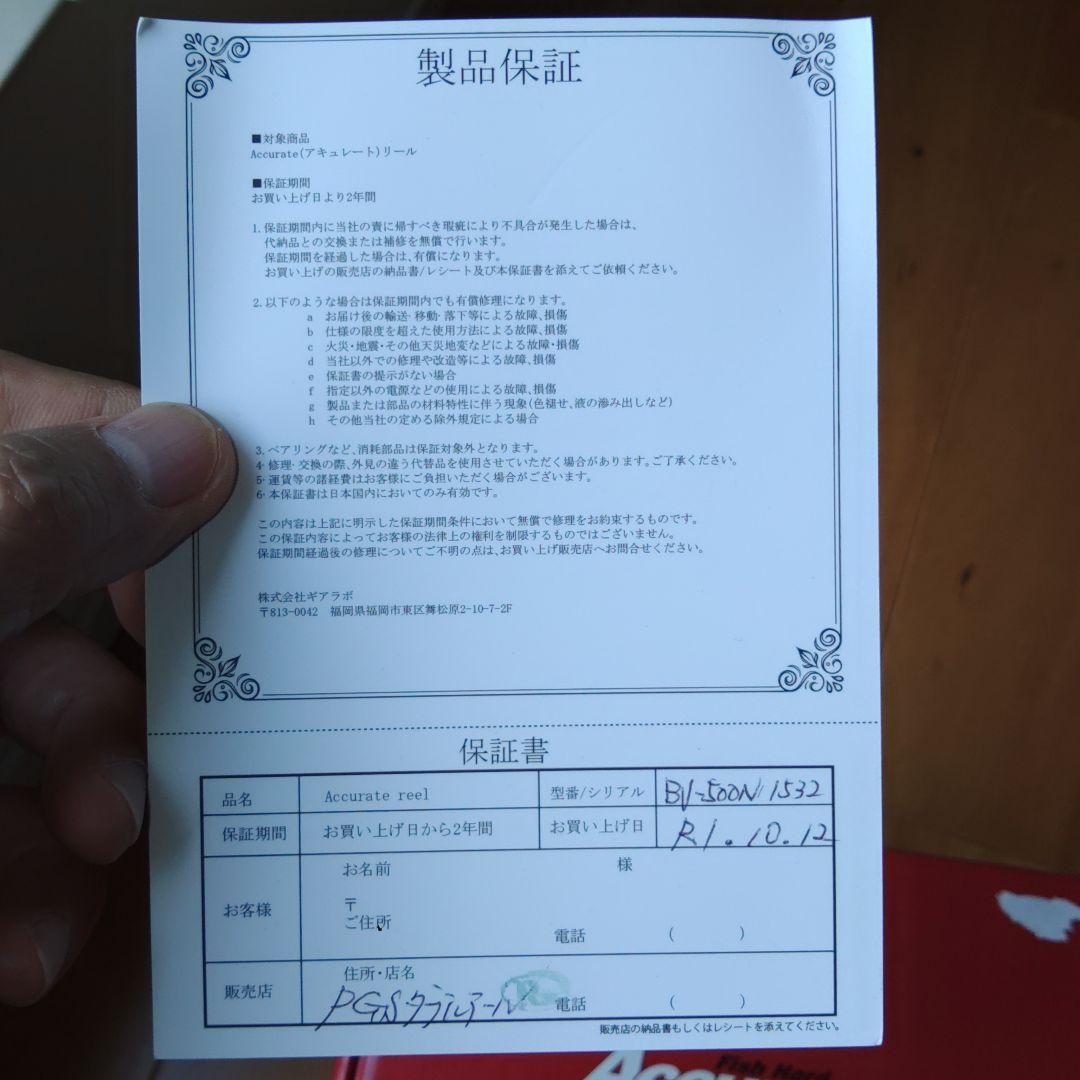 製品保証
■対象商品
Accurate(アキュレート)リール
■保証期間
お買い上げ日より2年間
1.保証期間内に当社の責に帰すべき瑕疵により不具合が発生した場合は、
代納品との交換または補修を無償で行います。
保証期間を経過した場合は、有償になります。
お買い上げの販売店の納品書/レシート及び本保証書を添えてご依頼ください。
2.以下のような場合は保証期間内でも有償修理になります。
a お届け後の輸送・移動・落下等による故障、損傷
b 仕様の限度を超えた使用方法による故障、損傷
c 火災・地震・その他天災地変などによる故障・損傷
d 当社以外での修理や改造等による故障、損傷
e 保証書の提示がない場合
f 指定以外の電源などの使用による故障、損傷
g 製品または部品の材料特性に伴う現象(色褪せ、液の滲み出しなど)
h その他当社の定める除外規定による場合
3.ベアリングなど、消耗部品は保証対象外となります。
4・修理・交換の際、外見の違う代替品を使用させていただく場合があります。ご了承ください。
5・運賃等の諸経費はお客様にご負担いただく場合がございます。
6・本保証書は日本国内においてのみ有効です。
この内容は上記に明示した保証期間条件において無償で修理をお約束するものです。
この保証内容によってお客様の法律上の権利を制限するものではございません。
保証期間経過後の修理についてご不明の点は、お買い上げ販売店へお問合せください。
株式会社ギアラボ
〒813-0042 福岡県福岡市東区舞松原2-10-7-2F
保証書
品名 Accurate reel 型番/シリアル BV-500N 1532
保証期間 お買い上げ日から2年間 お買い上げ日 R1.10.12
お客様
お名前 様
〒
ご住所
電話 ( )
販売店
住所・店名
PGS 電話 ( )
販売店の納品書もしくはレシートを添えてください。
Fish Hard
Accu